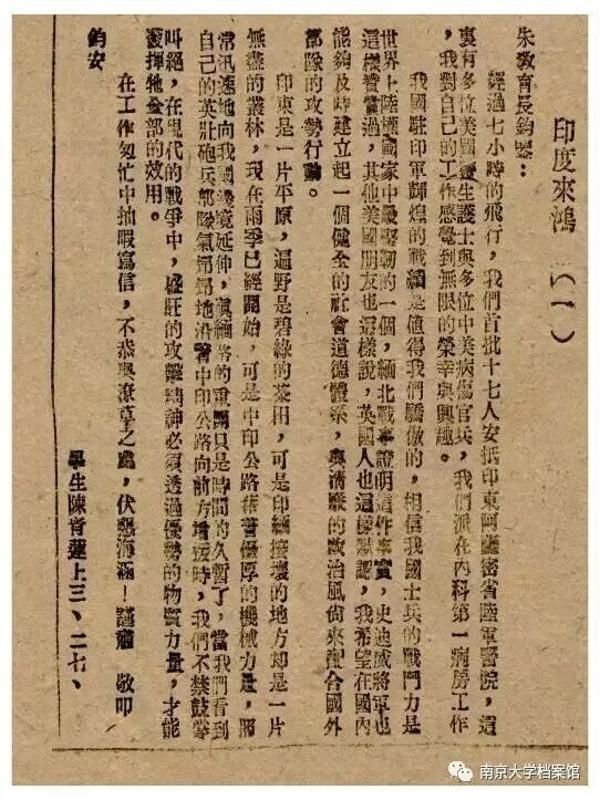 印度來鴻（一）
朱教育長鈞鑒：
經過七小時的飛行，我們首批十七人安抵印東阿薩密省陸軍醫院，這
裏有多位美國醫生護士與多位中美病傷官兵，我們派在內科第一病房工作
，我對自己的工作感覺到無限的榮幸與興趣。
我國駐印軍輝煌的戰績是値得我們驕傲的，相信我國士兵的戰鬥力是
世界上陸權國家中最堅韌的一個，緬北戰事證明這件事實，史迪威將軍也
這樣贊當過，其他美國朋友也這樣說，英國人也這樣默認，我希望在國內
能夠及時建立起一個健全的社會道德體系，與淸廉的政治風尙來配合國外
部隊的攻勢行動。
印東是一片平原，遍野是碧綠的茶田，可是印緬接壤的地方却是一片
無盡的叢林，現在雨季已經開始，可是中印公路藉着優厚的機械力量，將
常迅速地向我國邊境延伸，滇緬路的重開只是時間的久暫了，當我們看到
自己的英壯砲兵部隊氣昂昂地沿着中印公路向前方增援時，我們不禁鼓掌
叫絕，在現代的戰爭中，盛旺的攻擊精神必須透過優勢的物質力量，才能
發揮牠全部的效用。
在工作匆忙中抽暇寫信，不恭與潦草之處，伏懇海涵！謹肅　敬叩
鈞安
學生陳育蓮上三、二七、
南京大学档案馆